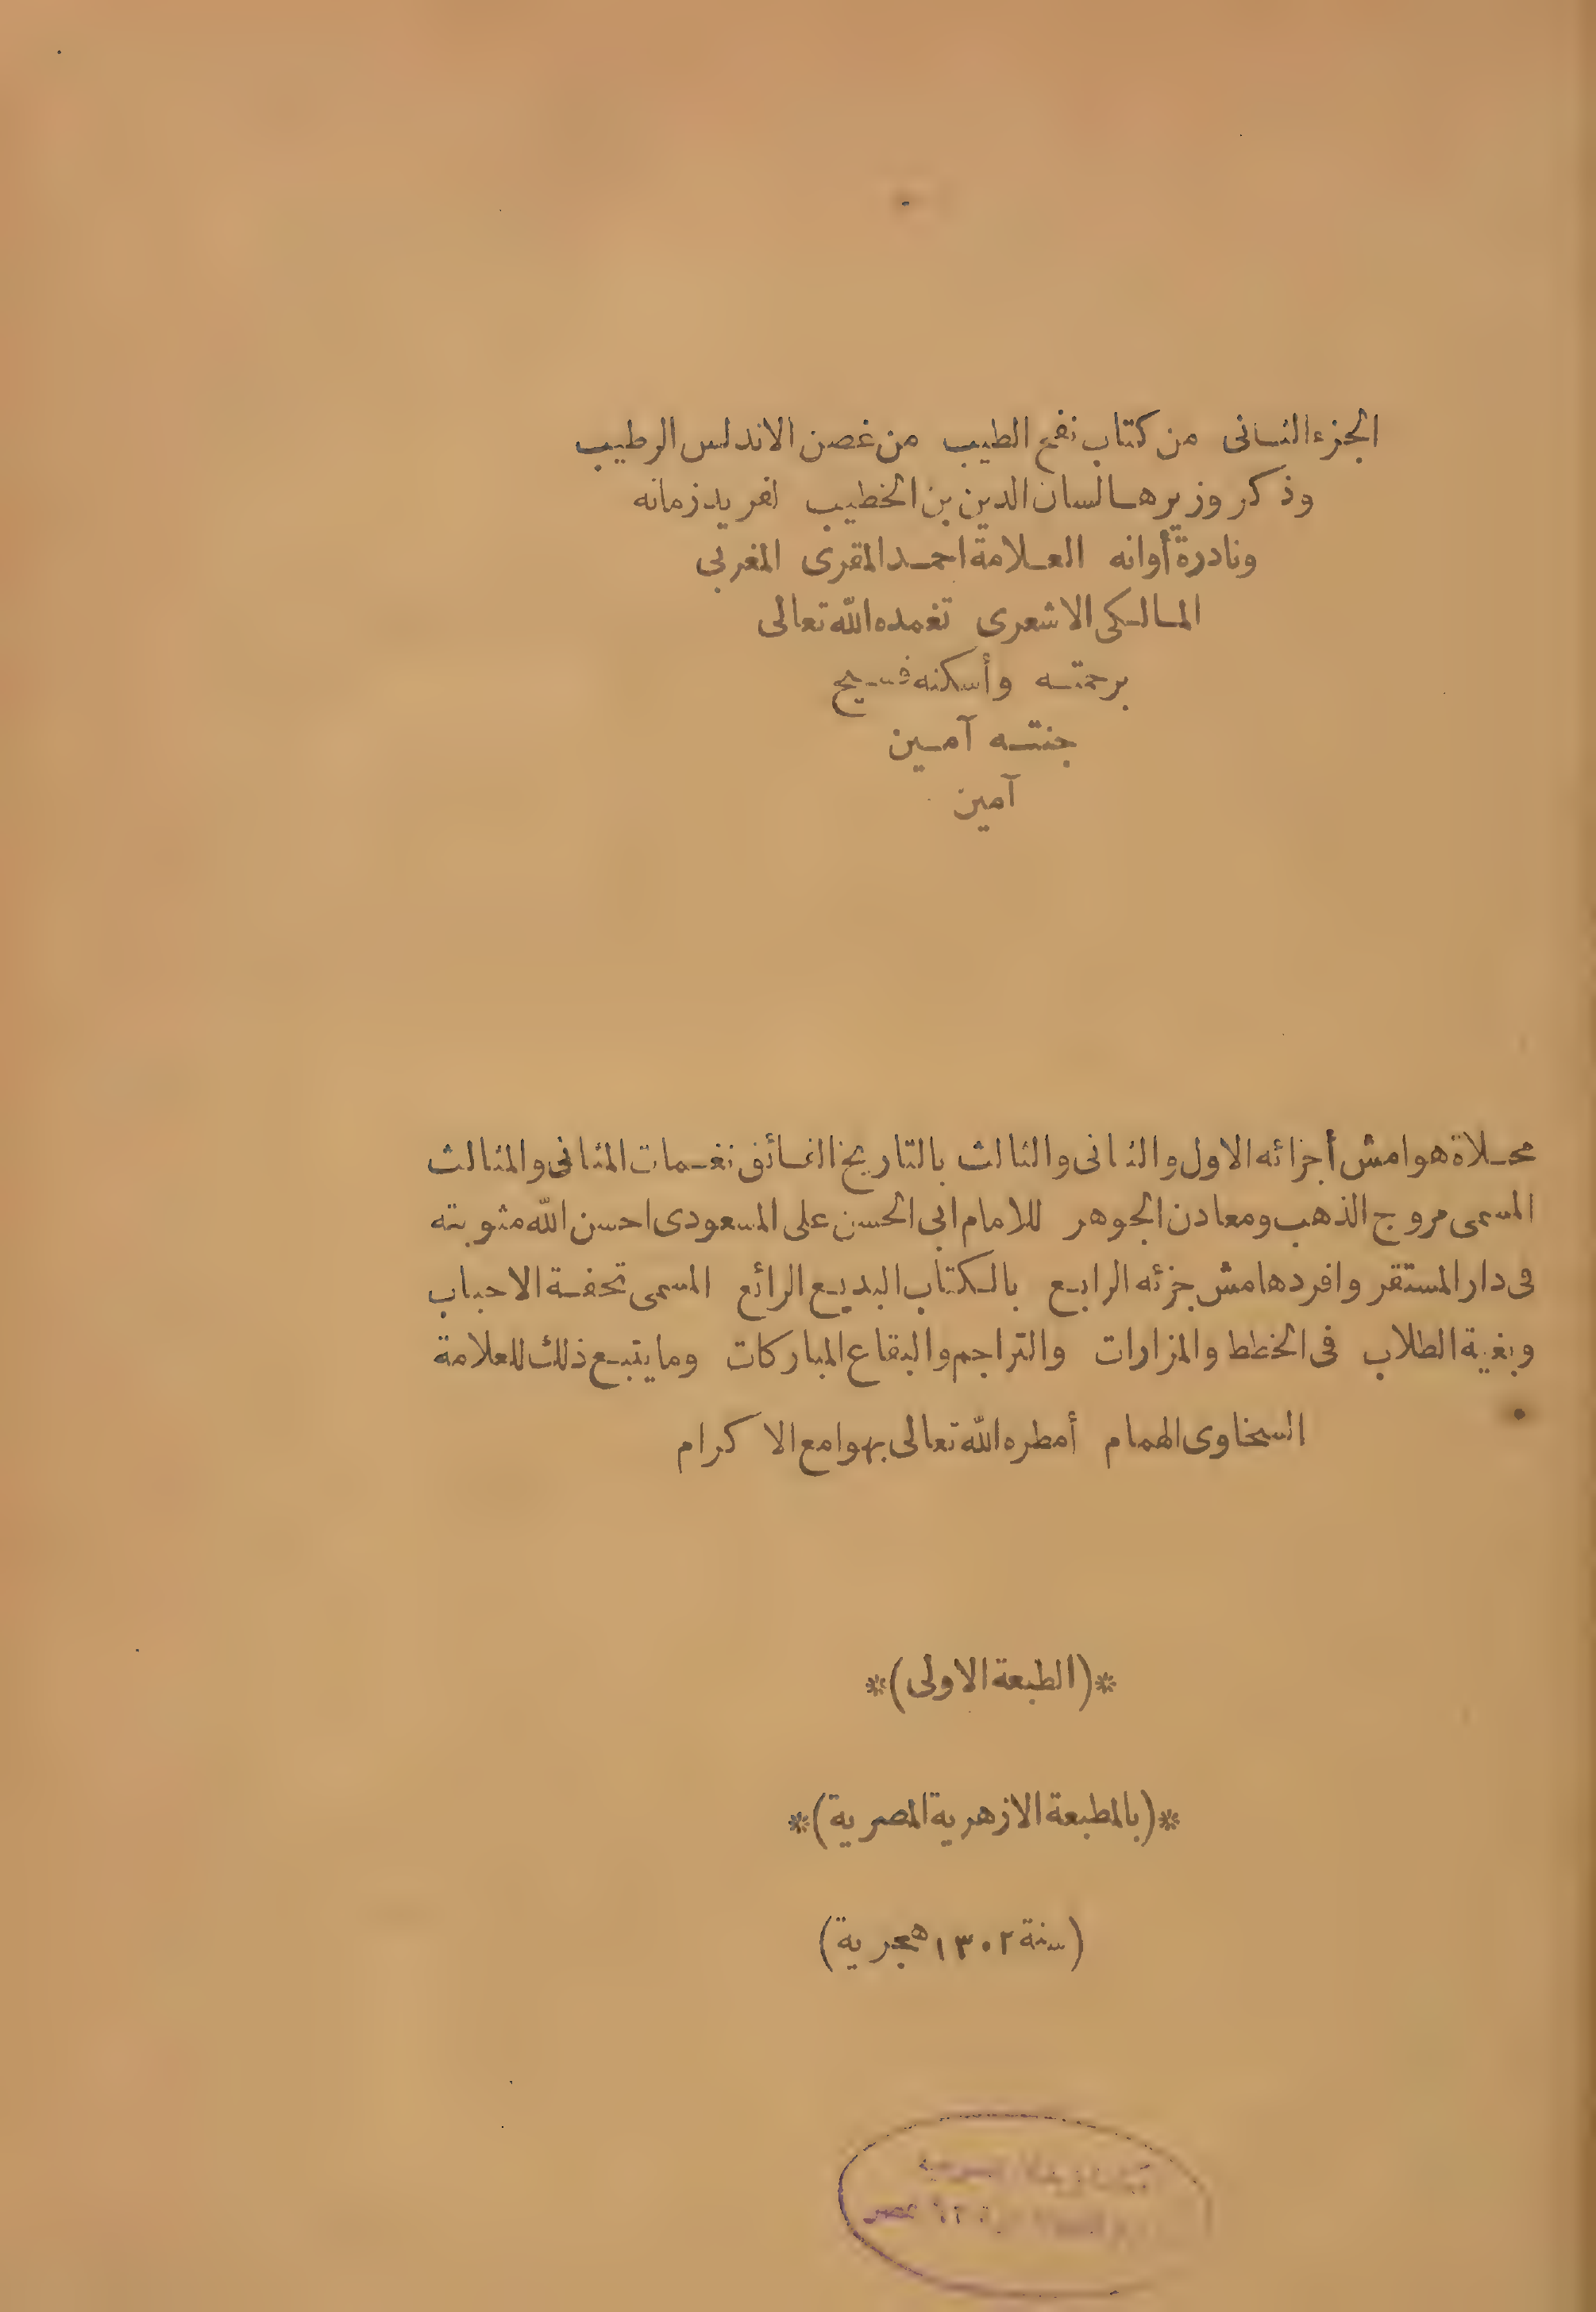 الجزء الثانى من كتاب نفح الطيب من غصن الاندلس الرطيب
وذكر وزيرها لسان الدين بن الخطيب لفريد زمانه
ونادرة أوانه العلامة احمد المقرى المغربى
المالكى الاشعرى تغمده الله تعالى
برحمته وأسكنه فسيح
جنته آمين
آمين
محلاة هوامش أجزائه الاول والثانى والثالث بالتاريخ الفائق نغمات المثانى والمثالث
المسمى مروج الذهب ومعادن الجوهر للامام ابى الحسن على المسعودى احسن الله مثوبته
فى دار المستقر وافردهامش جزئه الرابع بالكتاب البديع الرائع المسمى تحفة الاحباب
وبغية الطلاب فى الخطط والمزارات والتراجم والبقاع المباركات وما يتبع ذلك للعلامة
السخاوى الهمام أمطره الله تعالى بهوامع الاكرام
*(الطبعة الاولى)*
*(بالمطبعة الازهرية المصرية)*
(سنة ١٣٠٢ هجرية)
مصر